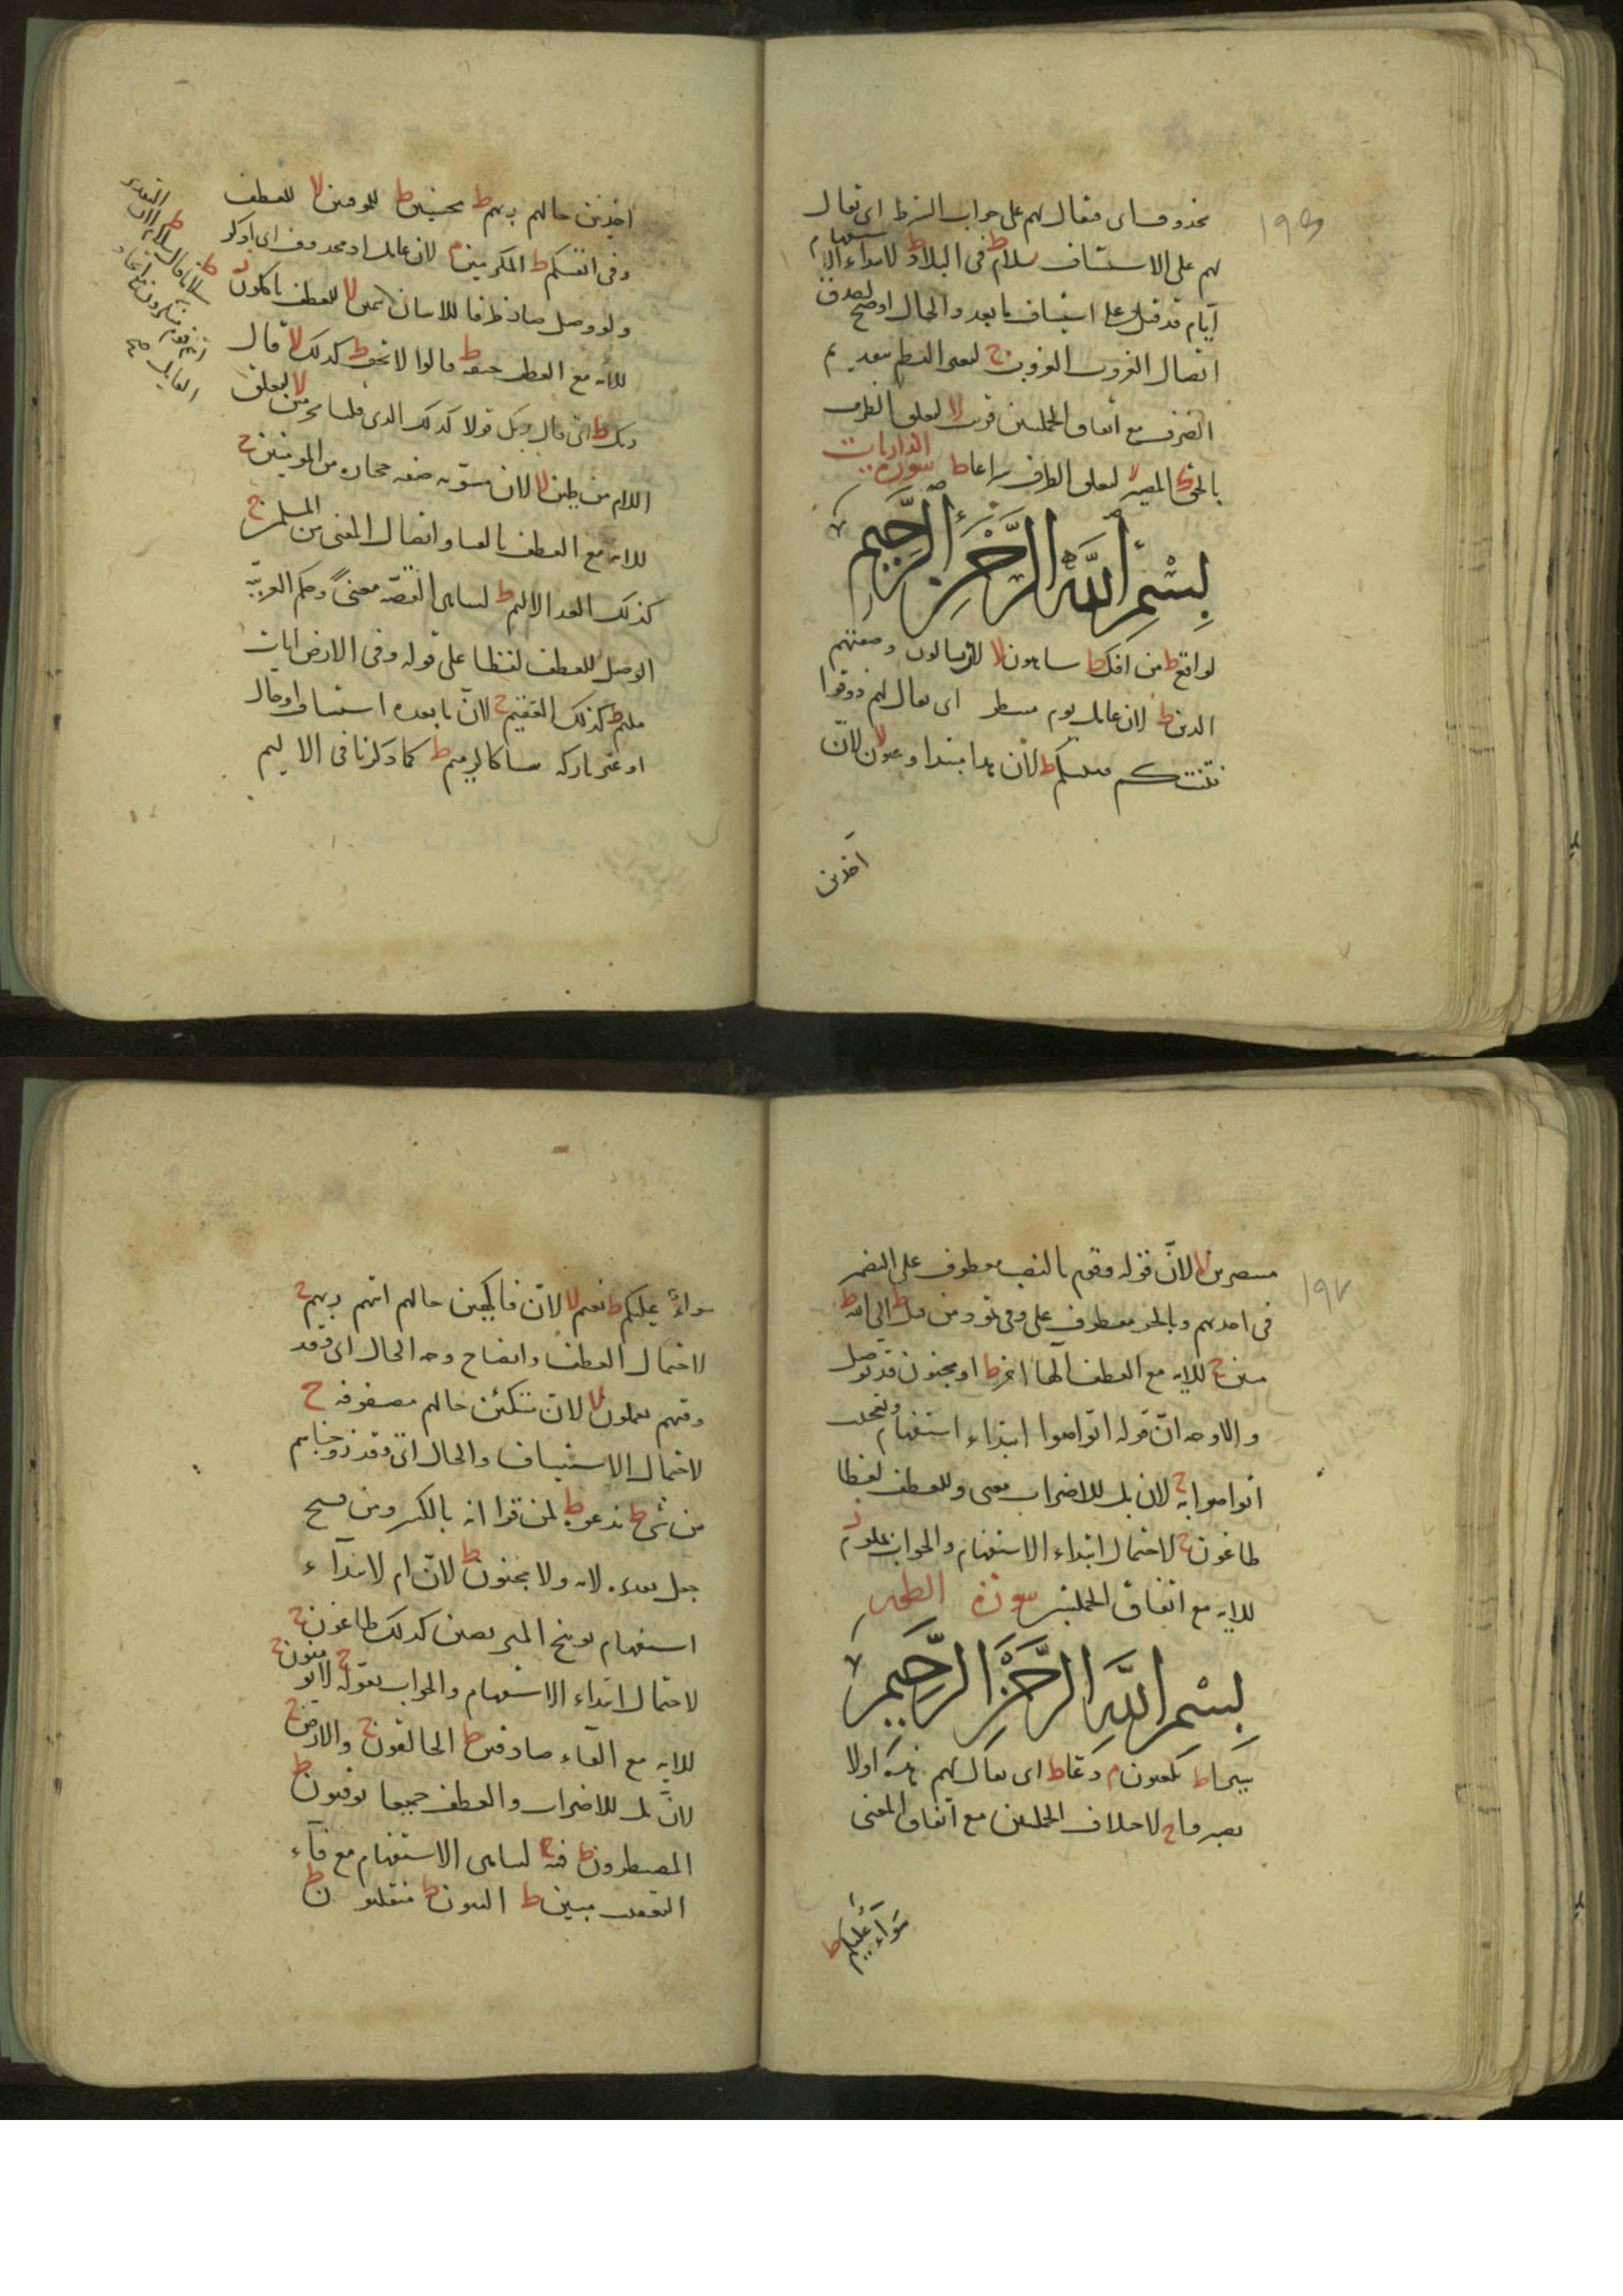 ١٩٦
محذوف اى فقال لهم على جواب الشرط اى يقال
لهم على الاستيناف سلام ط فى البلاد ط لابتداء الاستفهام
ايام قد قيل على استيناف ما بعد والحال اوضح لصدق
اتصال الغروب ج لعطف بتقديم
الظرف مع اتفاق الجملتين قريب لا لتعلق الظرف
بالحق ط المصير لا لتعلق الظرف سراعا ط سورة الذاريات
بسم الله الرحمن الرحيم
لواقع ط من افك ط ساهون لا لان يسالون وصفهم
الدين ط لان عامل يوم اى يقال لهم ذوقوا
فتنتكم ط لان هذا مبتدا وعيون لا لان
اخذين
اخذين حالهم ربهم ط محسنين ط للموقنين لا للعطف
وفى انفسكم ط المكرمين م لان عامل اذ محذوف اى اذكر
ولو وصل صار ظرفا للاتيان سمين لا للعطف تاكلون ز
للاية مع العطف خيفة ط قالوا لا تخف ط كذلك لا قال
ربك ط اى قال ربك قولا كذلك الذى قلنا مجرمين لا لتعلق
اللام من طين لا لان مسومة صفة حجارة من المومنين ج
للاية مع العطف بالفاء واتصال المعنى من المسلمين ج
كذلك العذاب الاليم ط لتناهى القصة معنى وحكم العربية
الوصل للعطف لفظا على قوله وفى الارض ايات
مليم ط كذلك العقيم ج لان ما بعده استيناف او حال
او غير تاركه كالرميم ط كما ذكرنا فى الاليم
سلاما ط قال سلام ط لان التقدير
انتم قوم منكرون
١٩٧
منتصرين لا لان قوله وقوم بالنصب معطوف على الضمير
فى اخذناهم وبالجر معطوف على وفى ثمود من قبل ط الى الله ط
مبين ج للاية مع العطف الها اخر ط او مجنون قد توصل
والاوجه ان قوله اتواصوا ابتداء استفهام وتعجب
اتواصوا به ج لان بل للاضراب معنى وللعطف لفظا
طاغون ج لاحتمال ابتداء الاستفهام والجواب بملوم ز
للاية مع اتفاق الجملتين سورة الطور
بسم الله الرحمن الرحيم
يلعبون م دعا ط اى يقال لهم هذه اولا
تصبروا ج لاختلاف الجملتين مع اتفاق المعنى
سواء عليكم ط
سواء عليكم ط نعيم لا لان فاكهين حالهم اتهم ربهم ج
لاحتمال العطف واتضاح وجه الحال اى وقد
وقيهم تعملون لا لان متكئين حالهم مصفوفة ج
لاحتمال الاستيناف والحال اى وقد زوجناهم
من شئ ط ندعوه ط لمن قرا انه بالكسر ومن فتح
جعل ولا مجنون ط لان ام لابتداء
استفهام توبيخ المتربصين كذلك طاغون ج
لاحتمال ابتداء الاستفهام والجواب بقوله تقوله ج لا يؤمنون ج
للاية مع الفاء صادقين ط الخالقون ج والارض ج
لان بل للاضراب والعطف جميعا يوقنون ط
المصيطرون ط فيه ج لتناهى الاستفهام مع فاء
التعقيب مبين ط البنون ط مثقلون ط